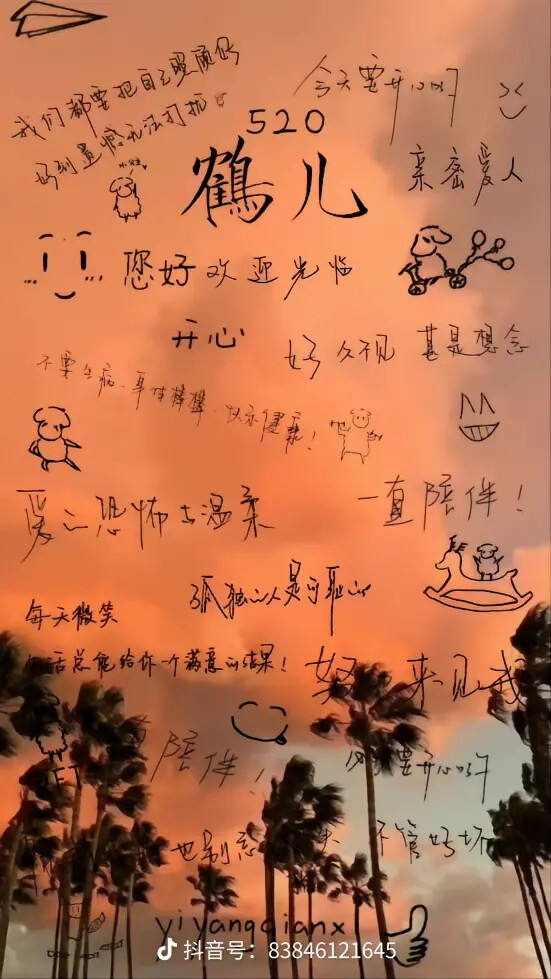 我们都要把自己照顾好
今天要开心呀
好到遗憾无法打扰
520
鹤儿
亲密爱人
您好 欢迎光临
开心
好久不见 甚是想念
不要生病、身体棒棒、永永健康！
爱之恐怖与温柔
一直陪伴！
孤独的人是可耻的
每天微笑
生活总能给你一个满意的结果！
来见我
陪伴！
要开心呀
也别忘
不管好坏
yiyangqianx
抖音号：83846121645